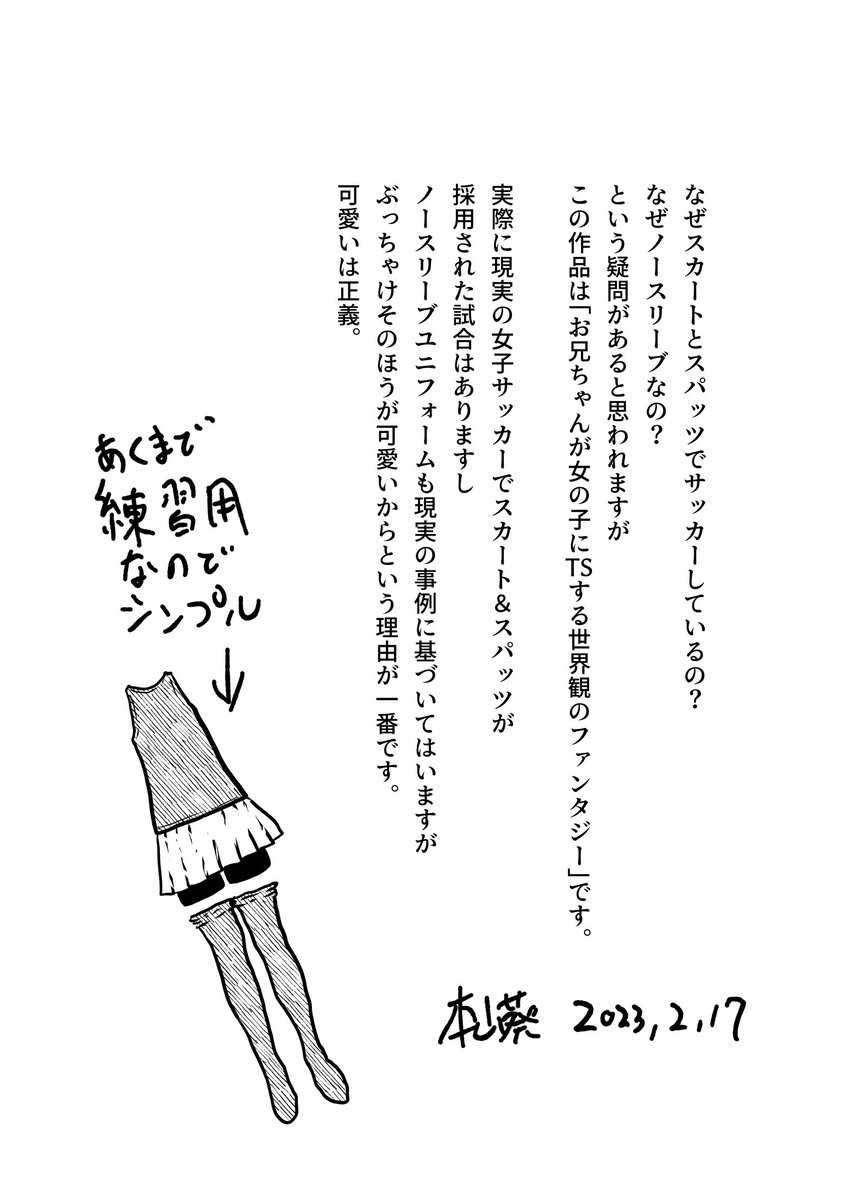 なぜスカートとスパッツでサッカーしているの？
なぜノースリーブなの？
という疑問があると思われますが
この作品は「お兄ちゃんが女の子にTSする世界観のファンタジー」です。
実際に現実の女子サッカーでスカート＆スパッツが
採用された試合はありますし
ノースリーブユニフォームも現実の事例に基づいてはいますが
ぶっちゃけそのほうが可愛いからという理由が一番です。
可愛いは正義。
あくまで
練習用
なので
シンプル
2023,2,17